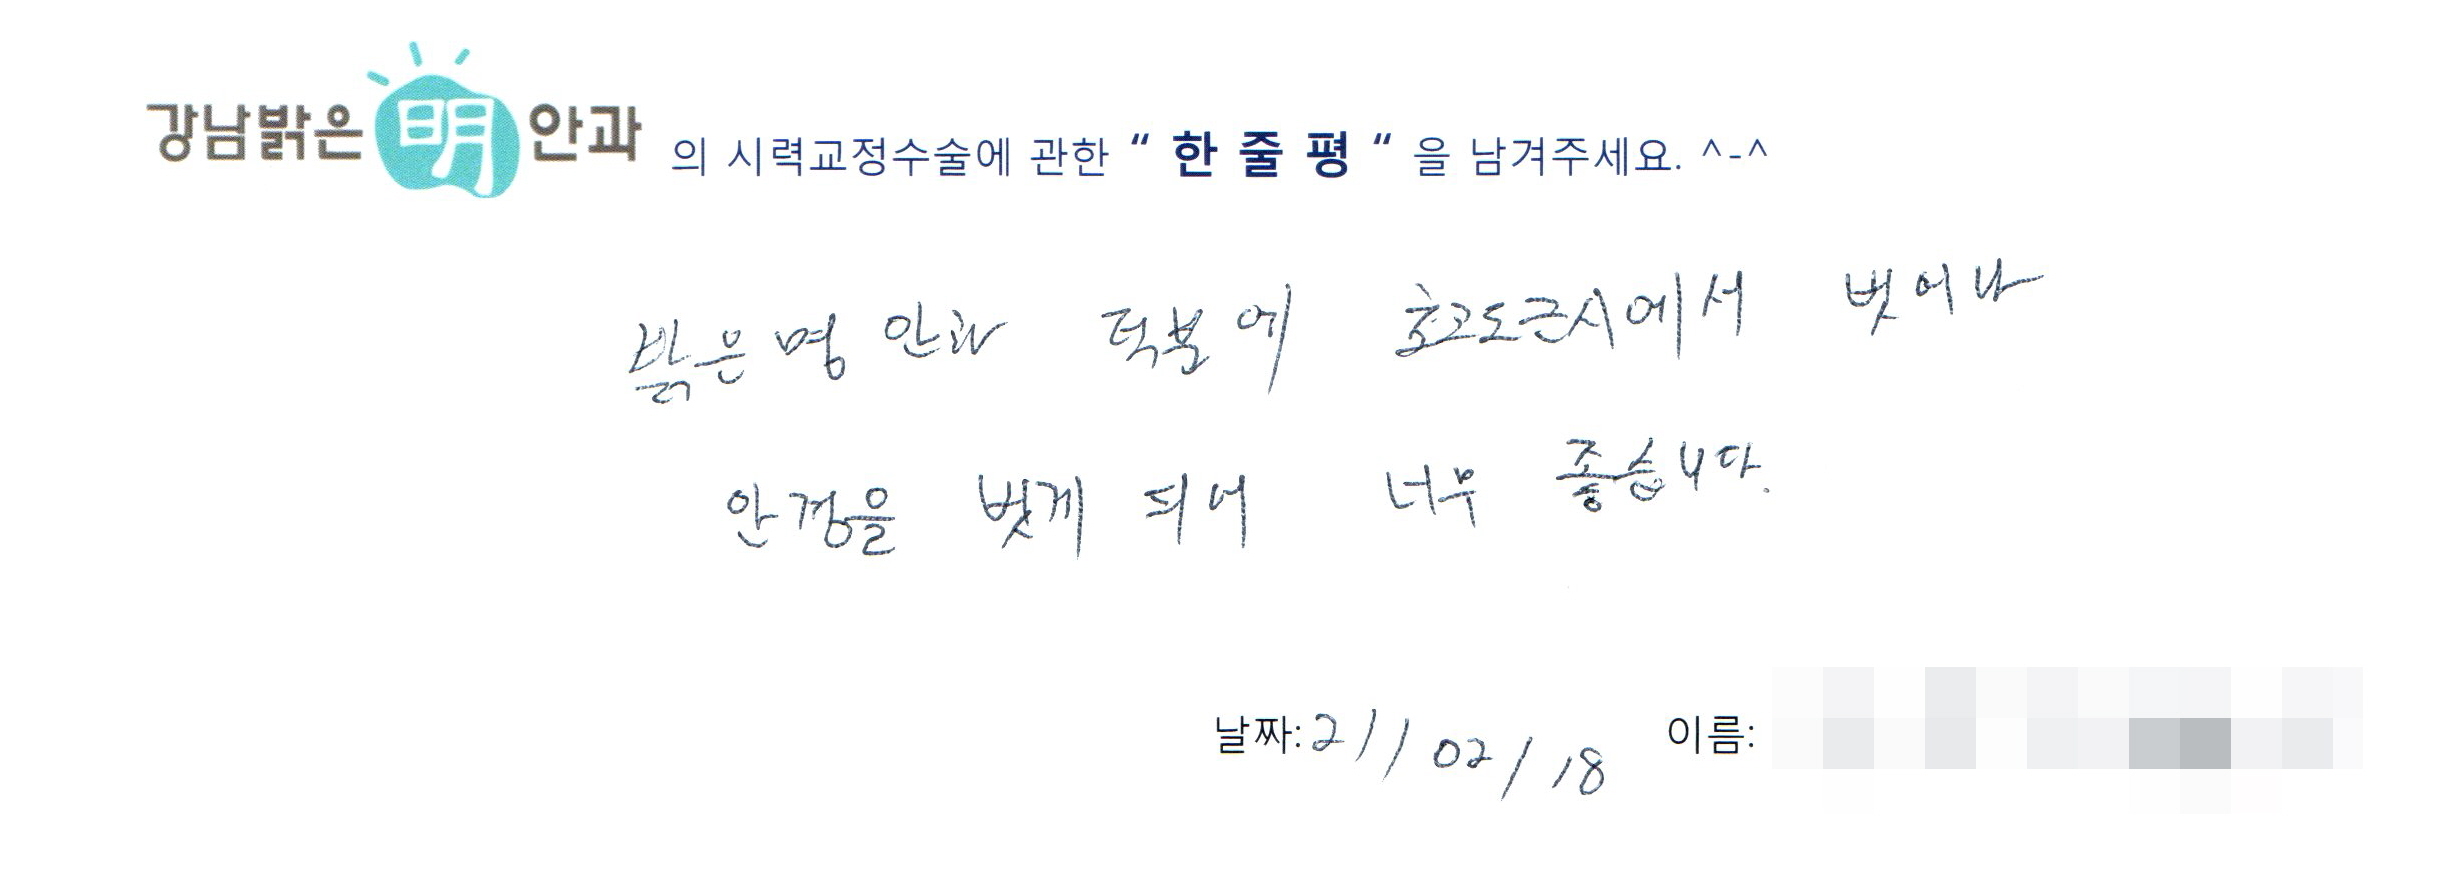 강남밝은明안과 의 시력교정수술에 관한 “ 한 줄 평 “ 을 남겨주세요. ^-^
밝은명 안과 덕분에 초고도근시에서 벗어나
안경을 벗게 되어 너무 좋습니다.
날짜:21/02/18 이름: